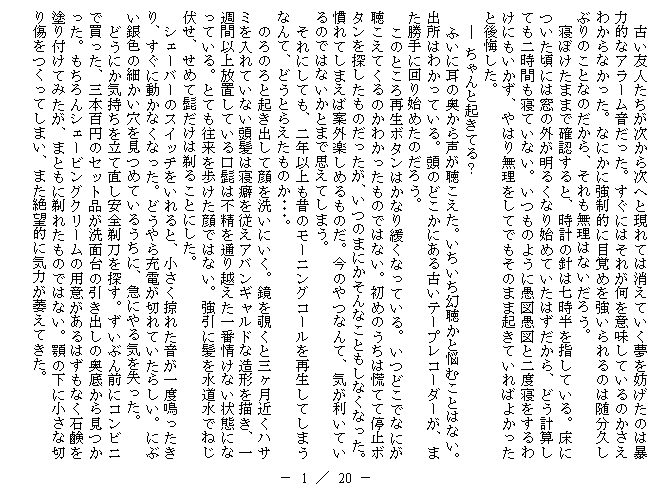 古い友人たちが次から次へと現れては消えていく夢を妨げたのは暴
力的なアラーム音だった。すぐにはそれが何を意味しているのかさえ
わからなかった。なにかに強制的に目覚めを強いられるのは随分久し
ぶりのことなのだから、それも無理はないだろう。
　寝ぼけたままで確認すると、時計の針は七時半を指している。床に
ついた頃には窓の外が明るくなり始めていたはずだから、どう計算し
ても二時間も寝ていない。いつものように愚図愚図と二度寝をするわ
けにもいかず、やはり無理をしてでもそのまま起きていればよかった
と後悔した。
　― ちゃんと起きてる？
　ふいに耳の奥から声が聴こえた。いちいち幻聴かと悩むことはない。
出所はわかっている。頭のどこかにある古いテープレコーダーが、ま
た勝手に回り始めたのだろう。
　このところ再生ボタンはかなり緩くなっている。いつどこでなにが
聴こえてくるのかわかったものではない。初めのうちは慌てて停止ボ
タンを探したものだったが、いつのまにかそんなこともしなくなった。
慣れてしまえば案外楽しめるものだ。今のやつなんて、気が利いてい
るのではないかとまで思えてしまう。
　それにしても、二年以上も昔のモーニングコールを再生してしまう
なんて、どうとらえたものか･･･。
　のろのろと起き出して顔を洗いにいく。鏡を覗くと三ヶ月近くハサ
ミを入れていない頭髪は寝癖を従えアバンギャルドな造形を描き、一
週間以上放置している口髭は不精を通り越えた一番情けない状態にな
っている。とても往来を歩けた顔ではない。強引に髪を水道水でねじ
伏せ、せめて髭だけは剃ることにした。
　シェーバーのスイッチをいれると、小さく掠れた音が一度鳴ったき
り、すぐに動かなくなった。どうやら充電が切れていたらしい。にぶ
い銀色の細かい穴を見つめているうちに、急にやる気を失った。
　どうにか気持ちを立て直し安全剃刀を探す。ずいぶん前にコンビニ
で買った、三本百円のセット品が洗面台の引き出しの奥底から見つか
った。もちろんシェービングクリームの用意があるはずもなく石鹸を
塗り付けてみたが、まともに剃れたものではない。顎の下に小さな切
り傷をつくってしまい、また絶望的に気力が萎えてきた。
－ 1 ／ 20 －